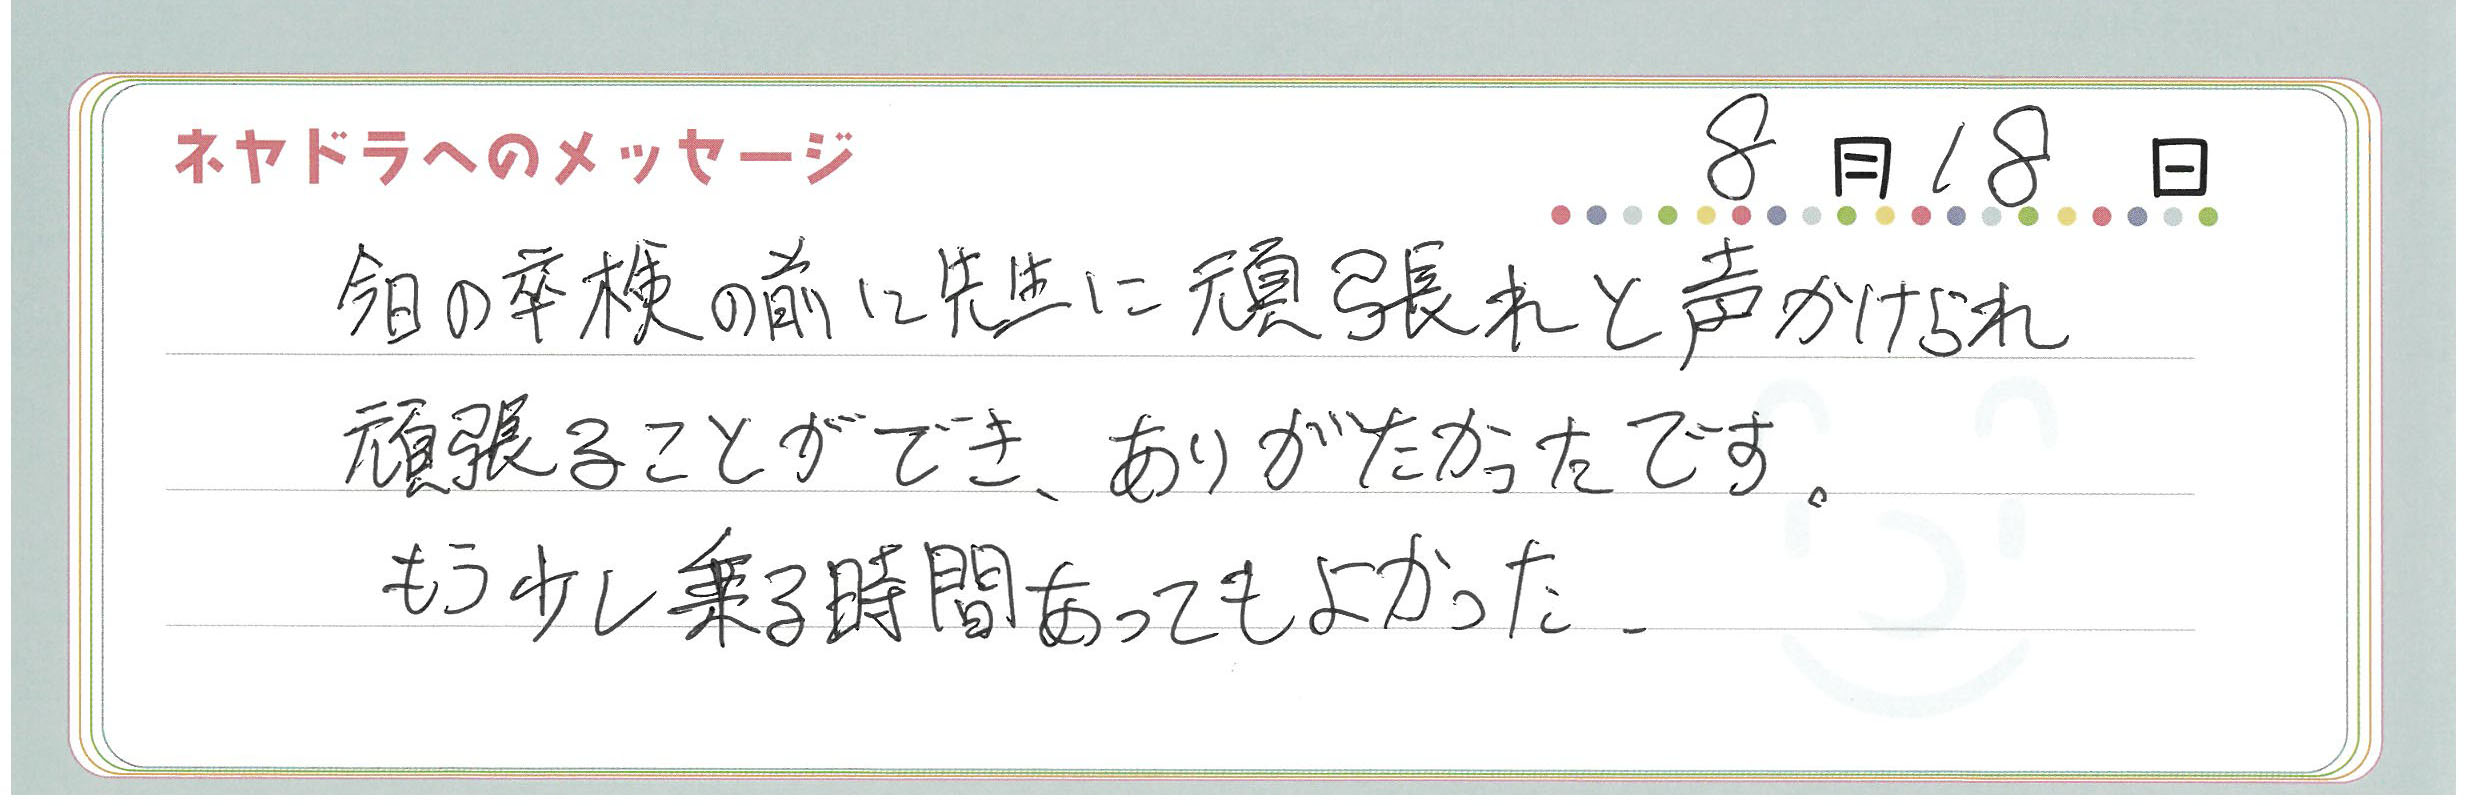 ネヤドラへのメッセージ
8月18日
今日の卒検の前に先生に頑張れと声かけられ
頑張ることができ、ありがたかったです。
もう少し乗る時間あってもよかった.